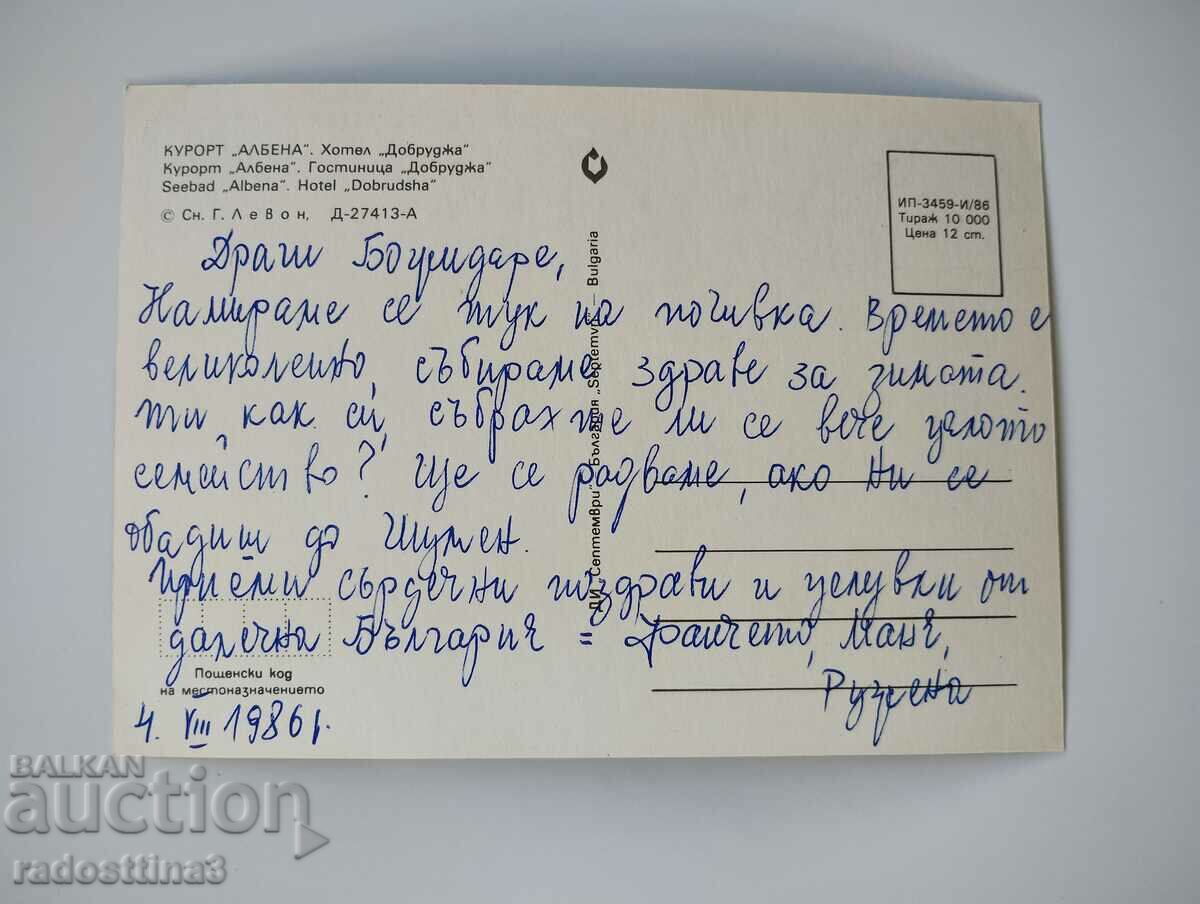 КУРОРТ „АЛБЕНА". Хотел „Добруджа"
Курорт „Албена". Гостиница „Добруджа"
Seebad „Albena". Hotel „Dobrudsha"
© Сн. Г. Левон, Д-27413-А
ИП-3459-И/86
Тираж 10 000
Цена 12 ст.
ДИ „Септември" — България „Septemvri" — Bulgaria
Драги Божидаре,
Намираме се тук на почивка. Времето е
великолепно, събираме здраве за зимата.
Ти, как си, събрахте ли се вече цялото
семейство? Ще се радваме, ако ни се
обадиш до Шумен.
Приеми сърдечни поздрави и целувки от
далечна България = Франчето, Маня,
Ружена
Пощенски код
на местоназначението
4. VIII 1986 г.
BALKAN
auction
radosttina3